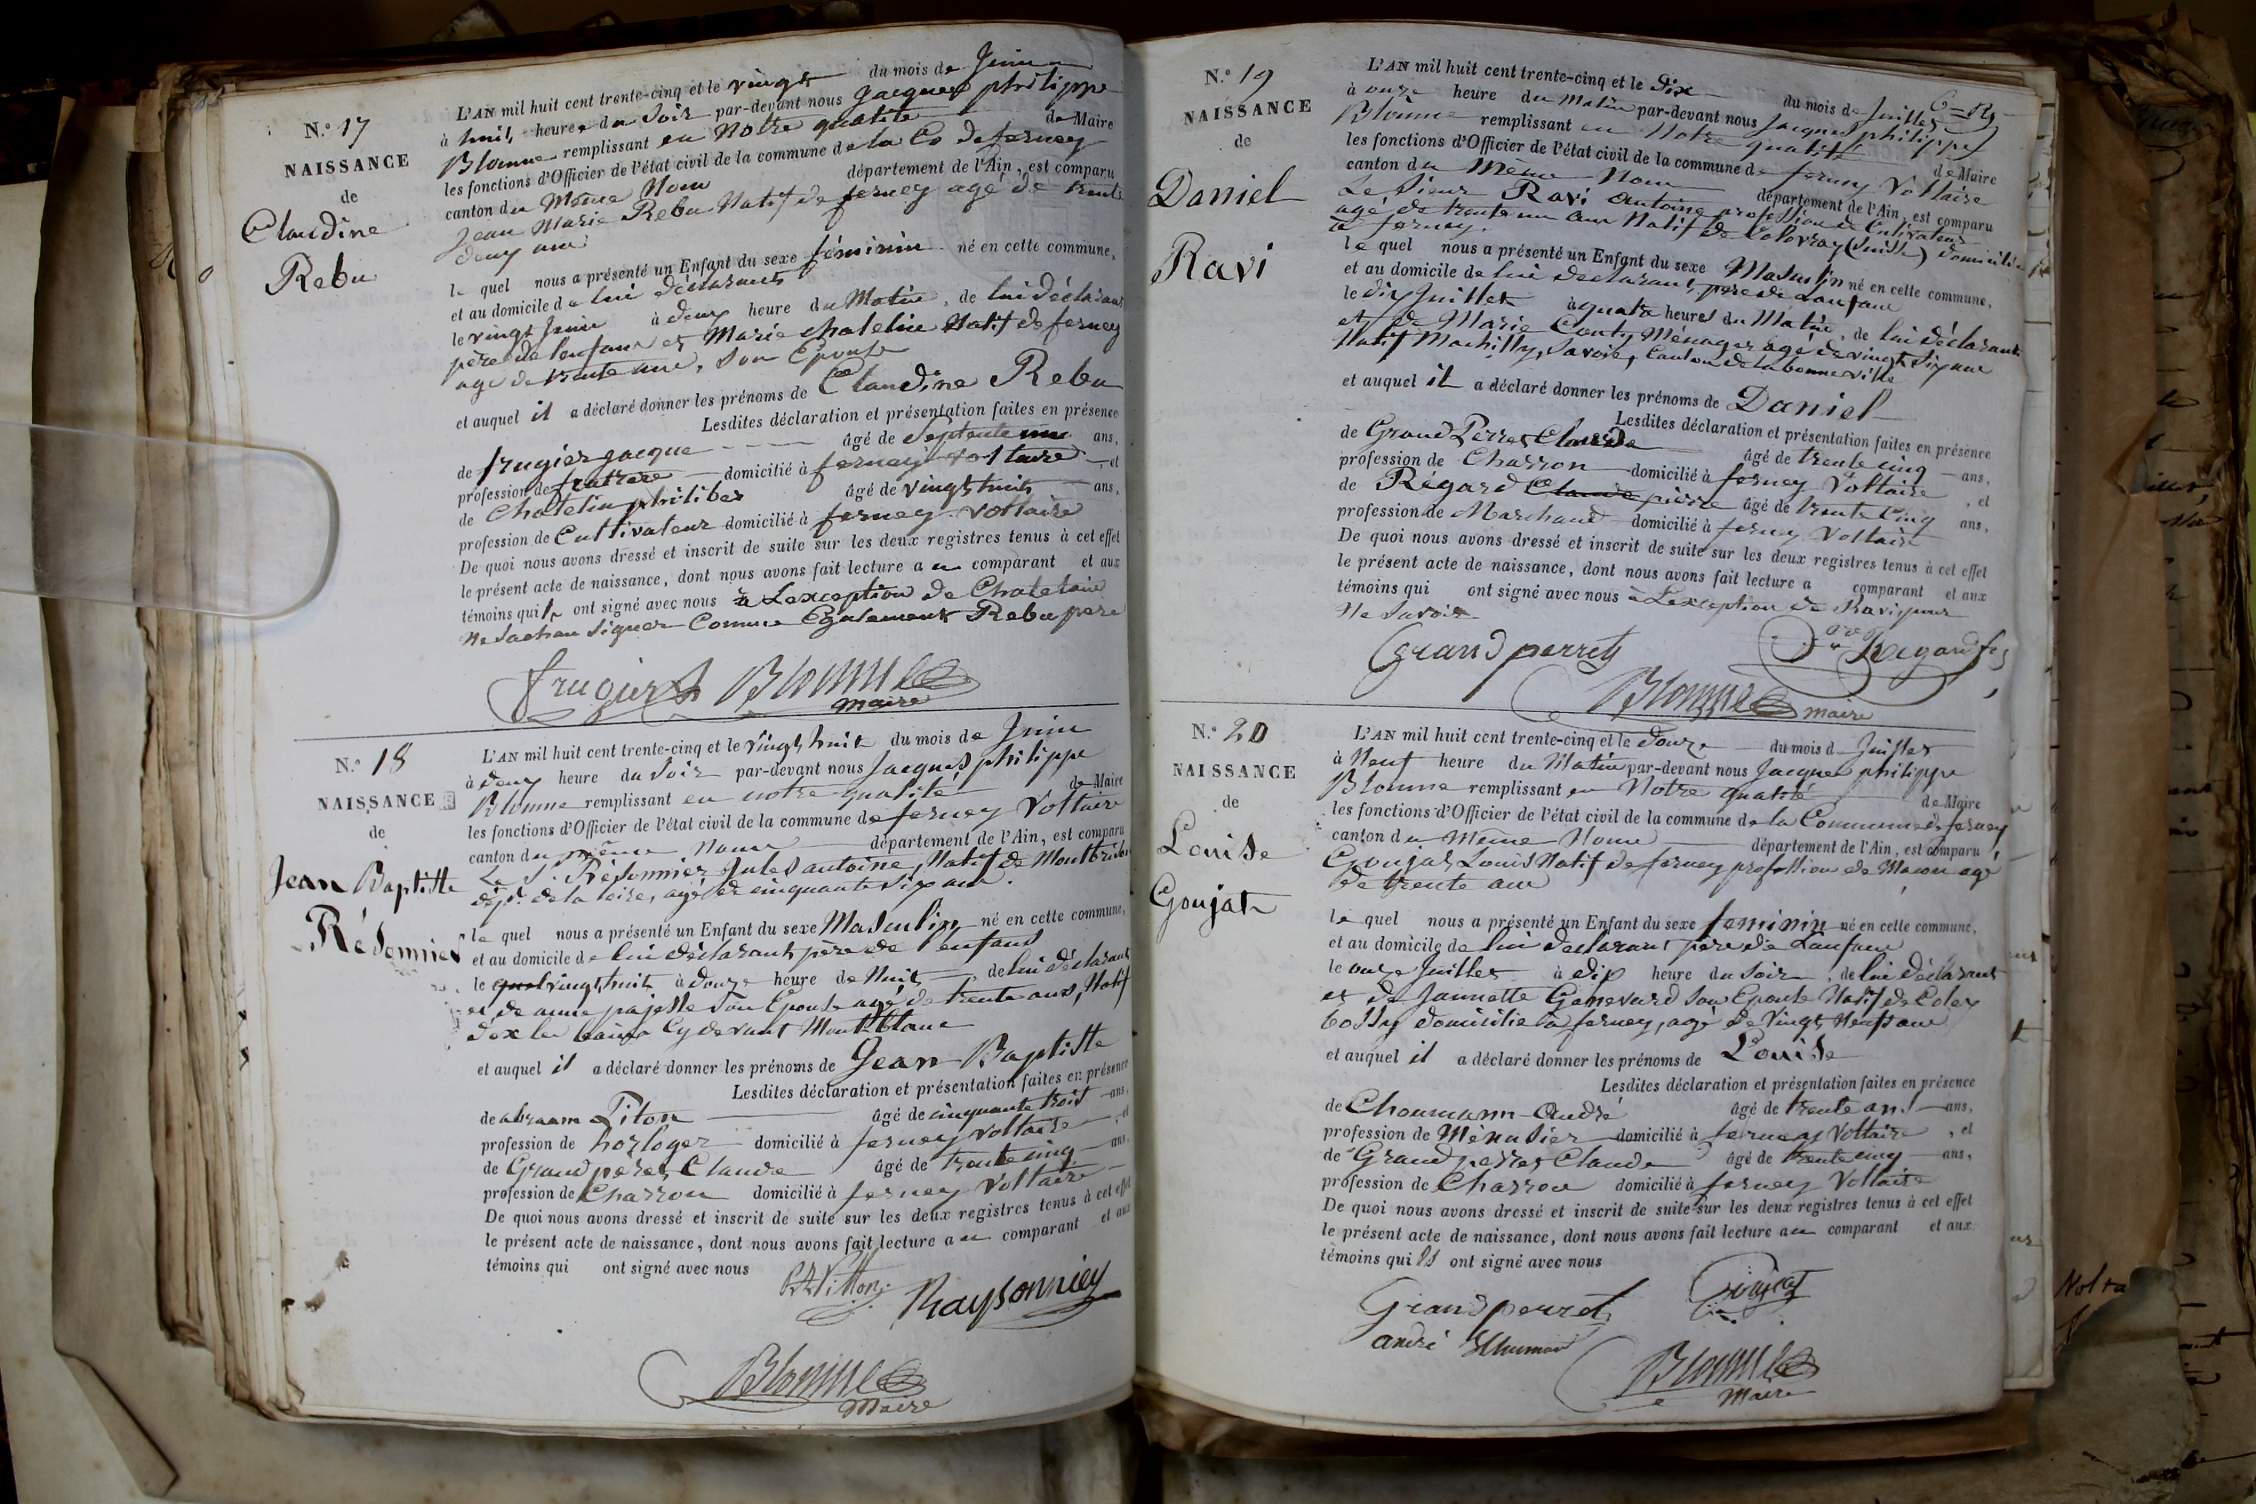 N.º 17
NAISSANCE
de
Claudine
Rebu
L'AN mil huit cent trente-cinq et le vingt du mois de Juin
à huit heure du Soir par-devant nous Jacques philippe
Blonne remplissant en Notre qualité de Maire
les fonctions d'Officier de l'état civil de la commune de la Co de ferney
canton du Même Nom département de l'Ain, est comparu
Jean Marie Rebu Natif de ferney agé de trente
deux ans
le quel nous a présenté un Enfant du sexe féminin né en cette commune,
et au domicile de lui déclarant
le vingt Juin à deux heure du Matin, de lui déclarant
père de lenfant et Marie chatelin Natif de ferney
age de trente ans, son Epouse
et auquel il a déclaré donner les prénoms de Claudine Rebu
Lesdites déclaration et présentation faites en présence
de frugier jacque âgé de Septente ans,
profession de domicilié à ferney voltaire, et
de Chatelin philiber âgé de vingt huit ans,
profession de Cultivateur domicilié à ferney voltaire
De quoi nous avons dressé et inscrit de suite sur les deux registres tenus à cet effet
le présent acte de naissance, dont nous avons fait lecture au comparant et aux
témoins qui ont signé avec nous à Lexception de Chatelain
Ne Sachan Signer Comme Egalement Rebu pere
frugier Blonne
maire
N.º 18
NAISSANCE
de
Jean Baptiste
Résonnier
L'AN mil huit cent trente-cinq et le vingt huit du mois de Juin
à deux heure du Soir par-devant nous Jacques philippe
Blonne remplissant en notre qualité de Maire
les fonctions d'Officier de l'état civil de la commune de ferney Voltaire
canton du même Nom département de l'Ain, est comparu
Le Sr. Résonnier Jules antoine, Natif de Montbrison
dépt. de la loire, agé de cinquante six ans.
le quel nous a présenté un Enfant du sexe Masculin né en cette commune,
et au domicile de lui déclarant père de l'enfant
le vingt huit à douze heure de Nuit, de lui déclarant
et de anne pajelle son Epouse agé de trente ans, Natif
d'ex les bains Cy devant Montblanc
et auquel il a déclaré donner les prénoms de Jean Baptiste
Lesdites déclaration et présentation faites en présence
de abraam Piton âgé de cinquante trois ans,
profession de horloger domicilié à ferney voltaire, et
de Grand peret Claude âgé de trente cinq ans,
profession de Charron domicilié à ferney Voltaire
De quoi nous avons dressé et inscrit de suite sur les deux registres tenus à cet effet
le présent acte de naissance, dont nous avons fait lecture au comparant et aux
témoins qui ont signé avec nous
Raysonnier
Blonne
Maire
N.º 19
NAISSANCE
de
Daniel
Ravi
L'AN mil huit cent trente-cinq et le Dix du mois de Juillet
à onze heure du Matin par-devant nous Jacques philippe
Blonne remplissant en Notre qualité de Maire
les fonctions d'Officier de l'état civil de la commune de ferney Voltaire
canton du Même Nom département de l'Ain, est comparu
Le Sieur Ravi Antoine profession de Cultivateur
agé de trente un ans Natif de Colovray (Suisse) domicilié
à ferney.
le quel nous a présenté un Enfant du sexe Masculin né en cette commune,
et au domicile de lui declarant, père de Lanfant
le dix Juillet à quatre heures du Matin, de lui déclarant
et de Marie Conty, Ménager agé de vingt Six ans
Natif Machilly, Savoie, Canton de la bonne ville
et auquel il a déclaré donner les prénoms de Daniel
Lesdites déclaration et présentation faites en présence
de Grand Perret Claude âgé de trente cinq ans,
profession de Charron domicilié à ferney Voltaire, et
de Régard Claude pierre âgé de trente Cinq ans,
profession de Marchand domicilié à ferney Voltaire
De quoi nous avons dressé et inscrit de suite sur les deux registres tenus à cet effet
le présent acte de naissance, dont nous avons fait lecture a comparant et aux
témoins qui ont signé avec nous à Lexception de Ravi pour
Ne Savoir
Grand perret Regard
Blonne maire
N.º 20
NAISSANCE
de
Louise
Goujat
L'AN mil huit cent trente-cinq et le Douze du mois d Juillet
à Neuf heure du Matin par-devant nous Jacques philippe
Blonne remplissant en Notre qualité de Maire
les fonctions d'Officier de l'état civil de la commune de la Commune de ferney
canton du Même Nome département de l'Ain, est comparu
Goujat Louis Natif de ferney profession de Macon agé
de trente ans
le quel nous a présenté un Enfant du sexe feminin né en cette commune,
et au domicile de lui declarant père de Lanfant
le onze Juillet à dix heure du Soir, de lui déclarant
et de Jannette Genevard son Epouse Natif de Colex
bossy domicilié à ferney, agé de Vingt Neuf ans
et auquel il a déclaré donner les prénoms de Louise
Lesdites déclaration et présentation faites en présence
de Choumann André âgé de trente ans ans,
profession de Menusier domicilié à ferney Voltaire, et
de Grand perret Claude âgé de trente cinq ans,
profession de Charron domicilié à ferney Voltaire
De quoi nous avons dressé et inscrit de suite sur les deux registres tenus à cet effet
le présent acte de naissance, dont nous avons fait lecture au comparant et aux
témoins qui ls ont signé avec nous
Grand perret Goujat
andré Schuman
Blonne
Maire